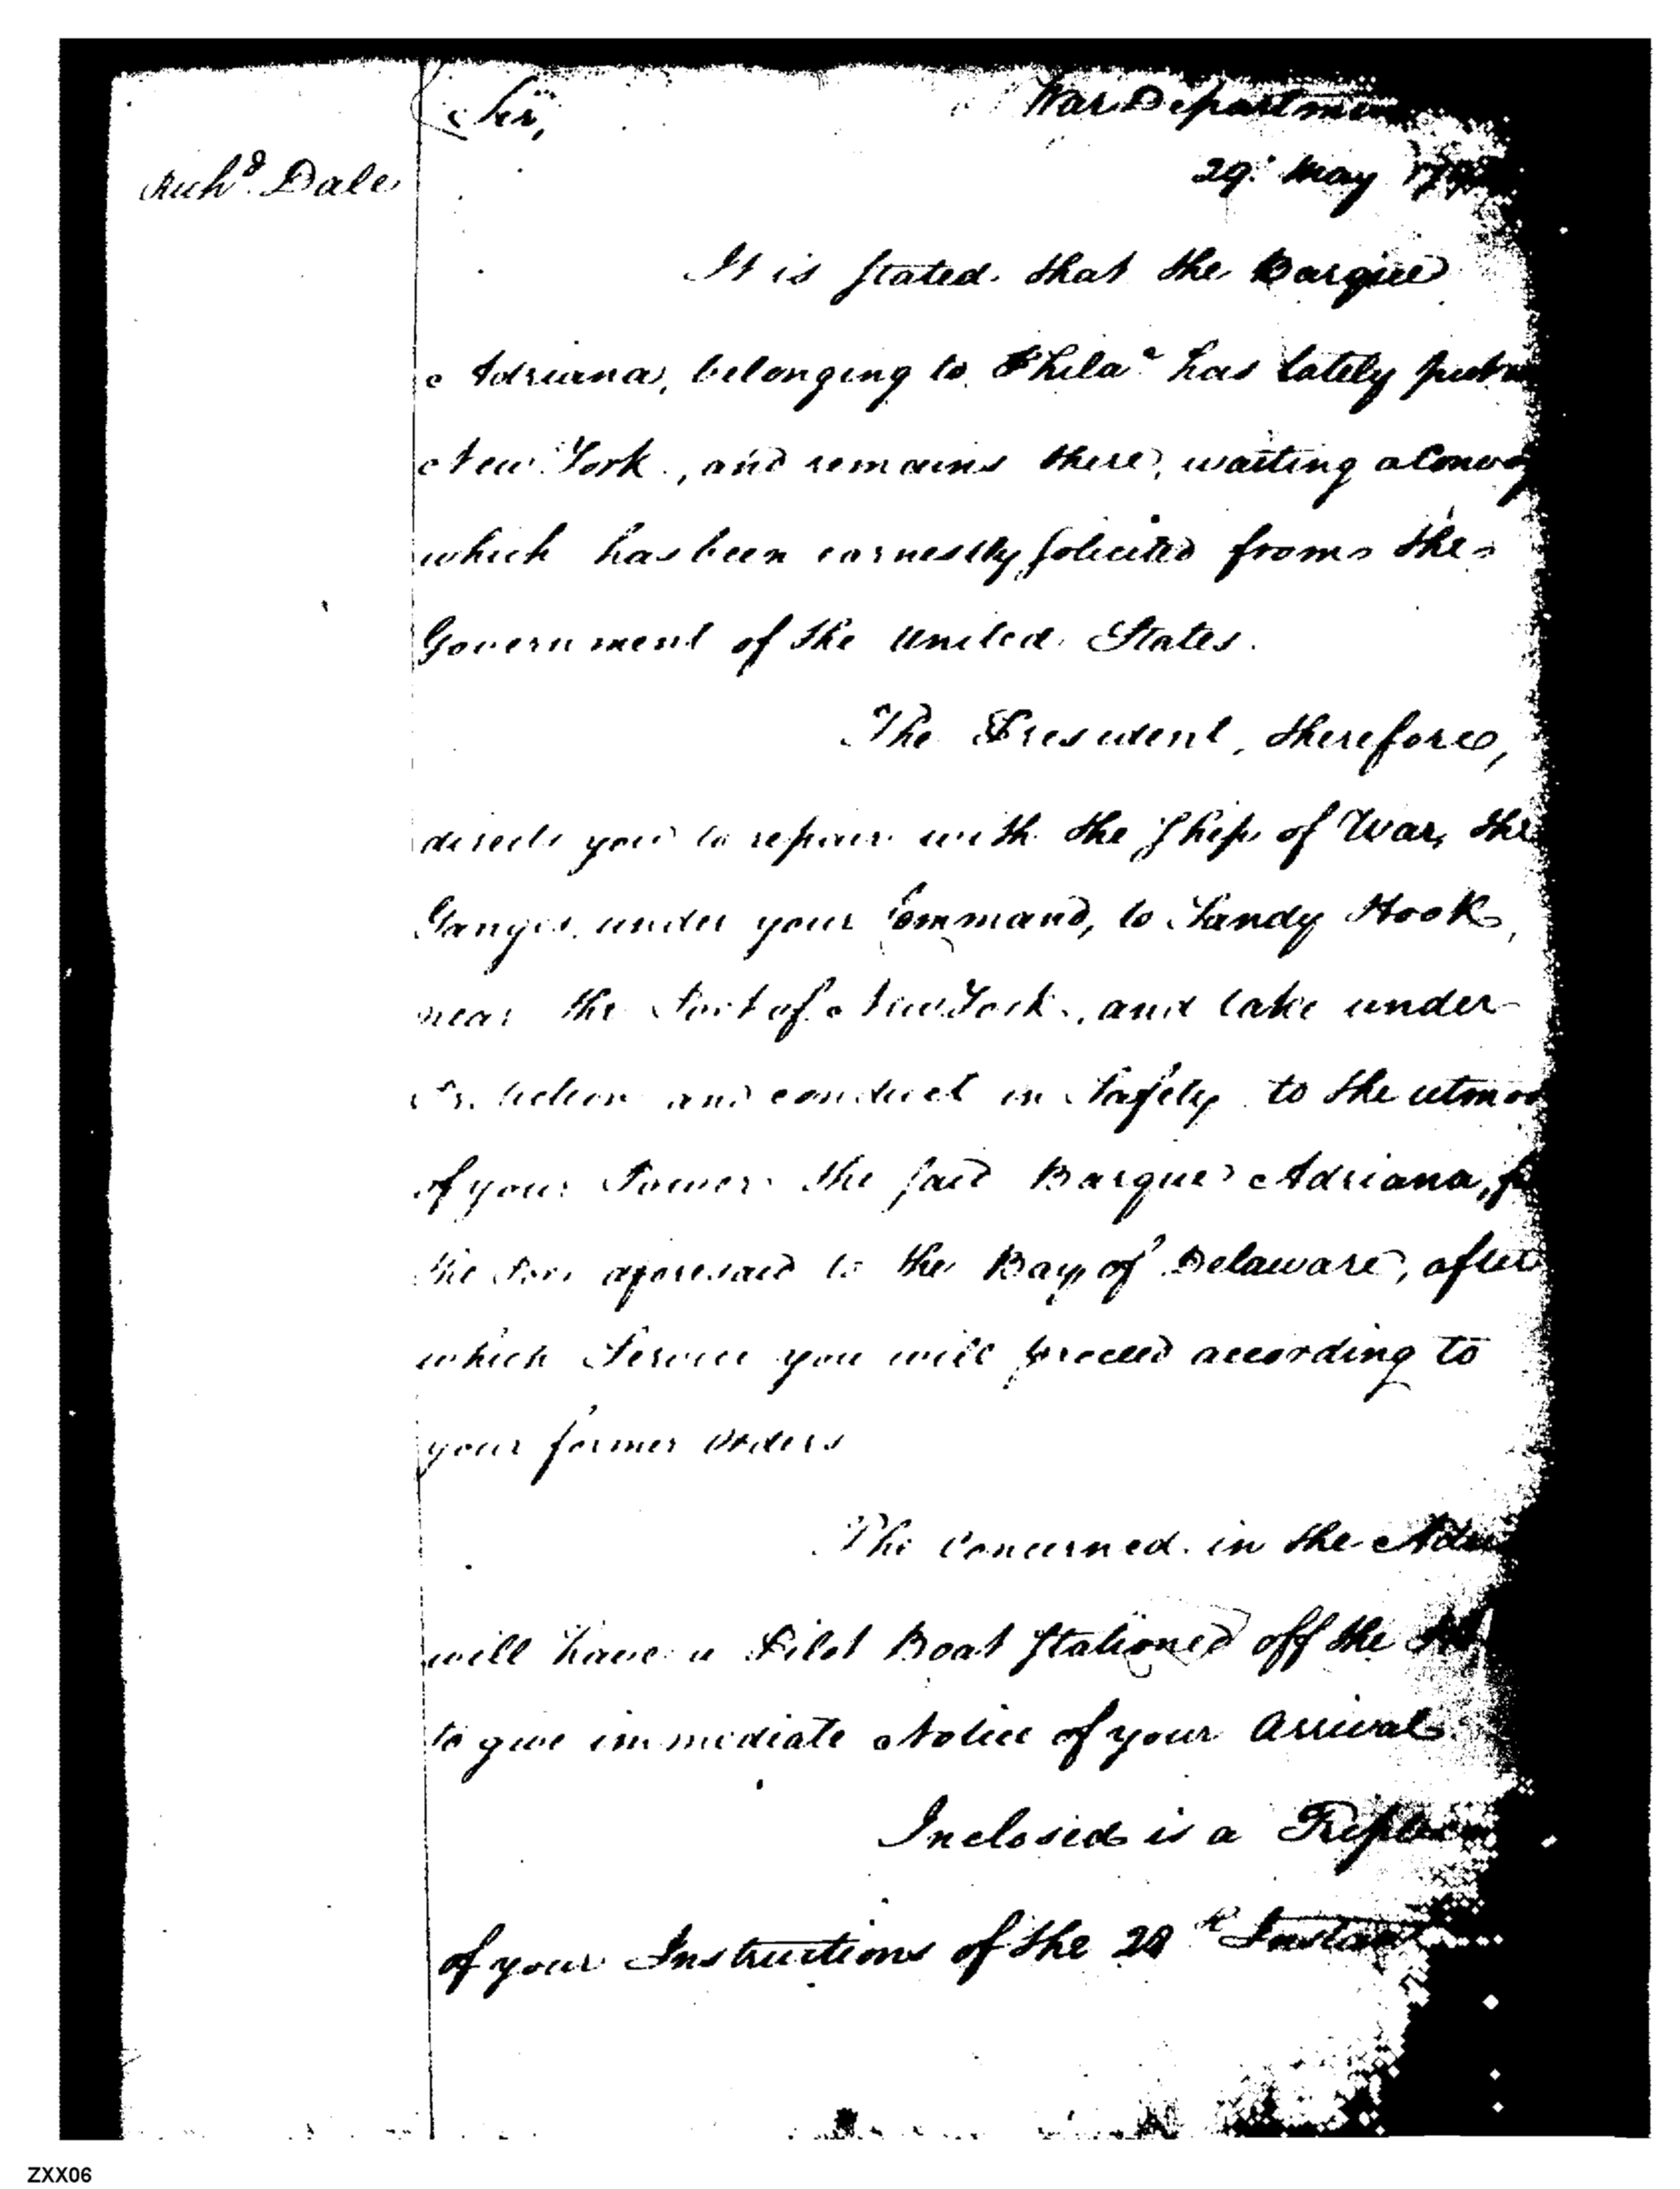 Sir, War Departmen
Rich^d. Dale 29. May 17
It is stated that the Barque
Adriana, belonging to Phila^a has lately put
New York, and remains there, waiting a Convoy
which has been earnestly solicited from the
Government of the United States.
The President, therefore,
directs you to repair with the Ship of War, the
Ganges, under your Command, to Sandy Hook,
near the Port of New York, and take under
Protection and conduct in Safety to the utmos
of your Power the said Barque Adriana,
the Port aforesaid to the Bay of Delaware, after
which Service you will proceed according to
your former Orders
The Concerned in the
will have a Pilot Boat stationed off the
to give immediate Notice of your Arrival.
Inclosed is a
of your Instructions of the 28^th Instant
ZXX06